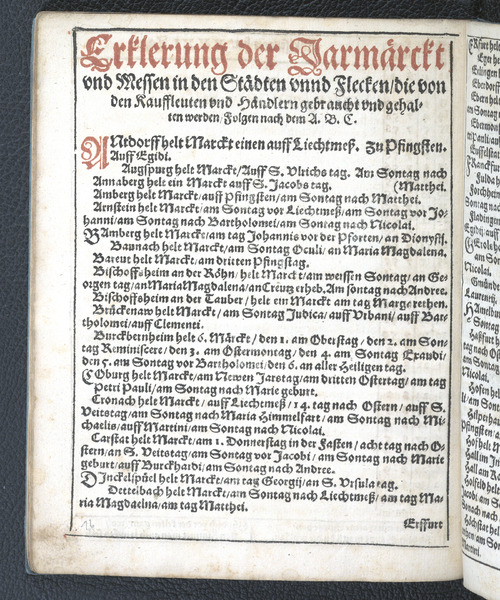 Erklerung der Jarmärckt
vnd Messen in den Städten vnnd Flecken/die von
den Kauffleuten vnd Händlern gebraucht vnd gehal-
ten werden/Folgen nach dem A. B. C.
ANtdorff helt Marckt einen auff Liechtmeß. Zu Pfingsten.
Auff Egidi.
Augspurg helt Marckt/Auff S. Vlrichs tag. Am Sontag nach
Annaberg helt ein Marckt auff S. Jacobs tag. (Matthei.
Amberg helt Marckt/auff Pfingsten/am Sontag nach Matthei.
Arnstein helt Marckt/am Sontag vor Liechtmeß/am Sontag vor Jo-
hanni/am Sontag nach Bartholomei/am Sontag nach Nicolai.
BAmberg helt Marckt/am tag Johannis vor der Pforten/an Dionysij.
Baunach helt Marckt/am Sontag Oculi/an Maria Magdalena.
Bareut helt Marckt/am dritten Pfingstag.
Bischoffsheim an der Röhn/helt Marckt/am weissen Sontag/an Ge-
orgen tag/an Maria Magdalena/an Creutz erheb. Am sontag nach Andree.
Bischoffsheim an der Tauber/helt ein Marckt am tag Margrethen.
Brückenaw helt Marckt/am Sontag Judica/auff Vrbani/auff Bar-
tholomei/auff Clementi.
Burckbernheim helt 6. Märckt/den 1. am Oberstag/den 2. am Son-
tag Reminiscere/den 3. am Ostermontag/den 4. am Sontag Exaudi/
den 5. am Sontag vor Bartholomei/den 6. an aller Heiligen tag.
COburg helt Marckt/am Newen Jarstag/am dritten Ostertag/am tag
Petri Pauli/am Sontag nach Marie geburt.
Cronach helt Marckt/auff Liechtmeß/14. tag nach Ostern/auff S.
Veitstag/am Sontag nach Maria Himmelfart/am Sontag nach Mi-
chaelis/auff Martini/am Sontag nach Nicolai.
Carstat helt Marckt/am 1. Donnerstag in der Fasten/acht tag nach O-
stern/an S. Veitstag/am Sontag vor Jacobi/am Sontag nach Marie
geburt/auff Burckhardi/am Sontag nach Andree.
DInckelspüel helt Marckt/am tag Georgij/an S. Vrsula tag.
Dettelbach helt Marckt/am Sontag nach Liechtmeß/am tag Ma-
ria Magdaelna/am tag Matthei.
Erffurt
16